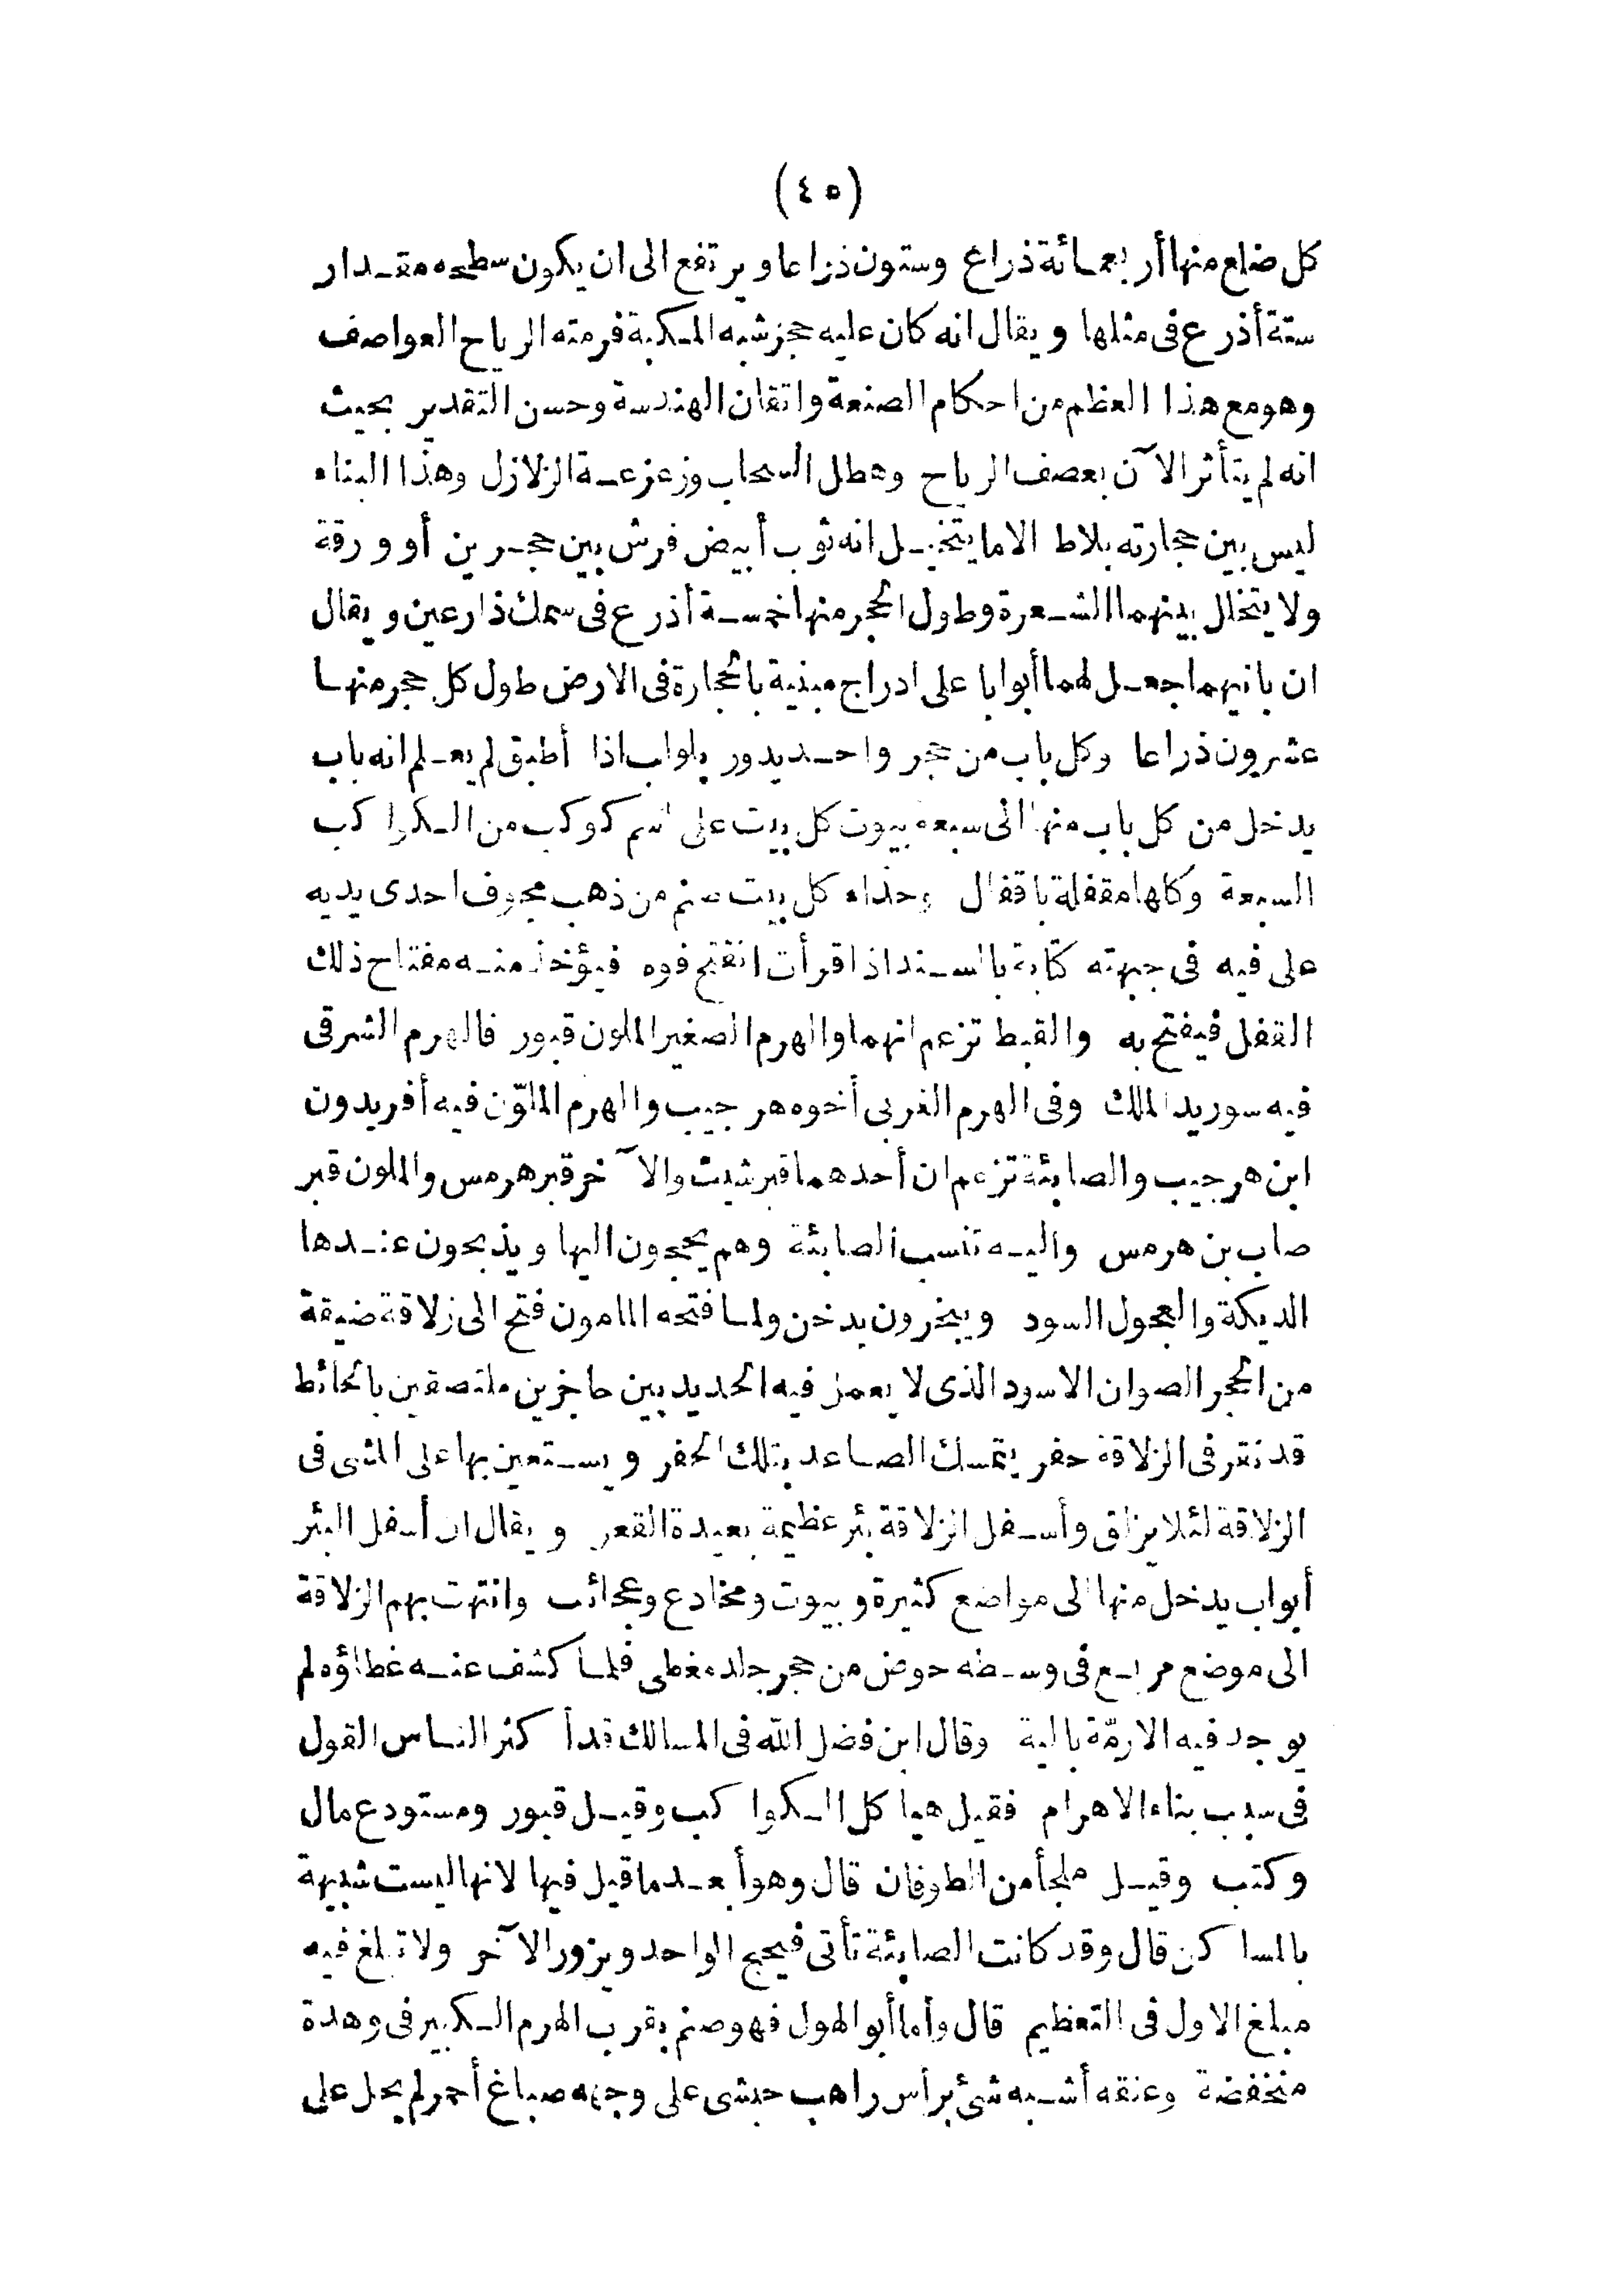 (٤٥)
كل ضلع منها أربعمائة ذراع وستون ذراعا ويرتفع الى ان يكون سطحه مقدار
ستة أذرع فى مثلها ويقال انه كان عليه حجر شبه المكبة فرمته الرياح العواصف
وهو مع هذا العظم من احكام الصنعة واتقان الهندسة وحسن التقدير بحيث
انه لم يتأثر الآن بعصف الرياح وهطل السحاب وزعزعة الزلازل وهذا البناء
ليس بين حجارته بلاط الا ما يتخيل انه ثوب أبيض فرش بين حجرين أو ورقة
ولا يتخلل بينهما الشعرة وطول الحجر منها خمسة أذرع فى سمك ذارعين ويقال
ان بانيهما جعل لهما أبوابا على ادراج مبنية بالحجارة فى الارض طول كل حجر منها
عشرون ذراعا وكل باب من حجر واحد يدور بلولب اذا أطبق لم يعلم انه باب
يدخل من كل باب منها الى سبعة بيوت كل بيت على اسم كوكب من الكواكب
السبعة وكلها مقفلة باقفال وحذاء كل بيت صنم من ذهب مجوف احدى يديه
على فيه فى جبهته كتابة بالمسند اذا قرأت انفتح فوه فيؤخذ منه مفتاح ذلك
القفل فيفتح به والقبط تزعم انهما والهرم الصغير الملون قبور فالهرم الشرقى
فيه سوريد الملك وفى الهرم الغربى أخوه هرجيب والهرم الملوّن فيه أفريدون
ابن هرجيب والصابئة تزعم ان أحدهما قبر شيث والآخر قبر هرمس والملون قبر
صاب بن هرمس واليه تنسب الصابئة وهم يحجون اليها ويذبحون عندها
الديكة والعجول السود ويبخرون بدخن ولما فتحه المامون فتح الى زلاقة ضيقة
من الحجر الصوان الاسود الذى لا يعمل فيه الحديد بين حاجزين ملتصقين بالحائط
قد نقر فى الزلاقة حفر يتمسك الصاعد بتلك الحفر ويستعين بها على المشى فى
الزلاقة لئلا يزلق وأسفل الزلاقة بئر عظيمة بعيدة القعر ويقال ان أسفل البئر
أبواب يدخل منها الى مواضع كثيرة وبيوت ومخادع وعجائب وانتهت بهم الزلاقة
الى موضع مربع فى وسطه حوض من حجر جلد مغطى فلما كشف عنه غطاؤه لم
يوجد فيه الا رمّة بالية وقال ابن فضل الله فى المسالك قد أكثر الناس القول
فى سبب بناء الاهرام فقيل هياكل الكواكب وقيل قبور ومستودع مال
وكتب وقيل ملجأ من الطوفان قال وهو أبعد ما قيل فيها لانها ليست شبيهة
بالمساكن قال وقد كانت الصابئة تأتى فيحج الواحد ويزور الآخر ولا تبلغ فيه
مبلغ الاول فى التعظيم قال وأما أبو الهول فهو صنم بقرب الهرم الكبير فى وهدة
منخفضة وعنقه أشبه شئ برأس راهب حبشى على وجهه صباغ أحمر لم يحل على